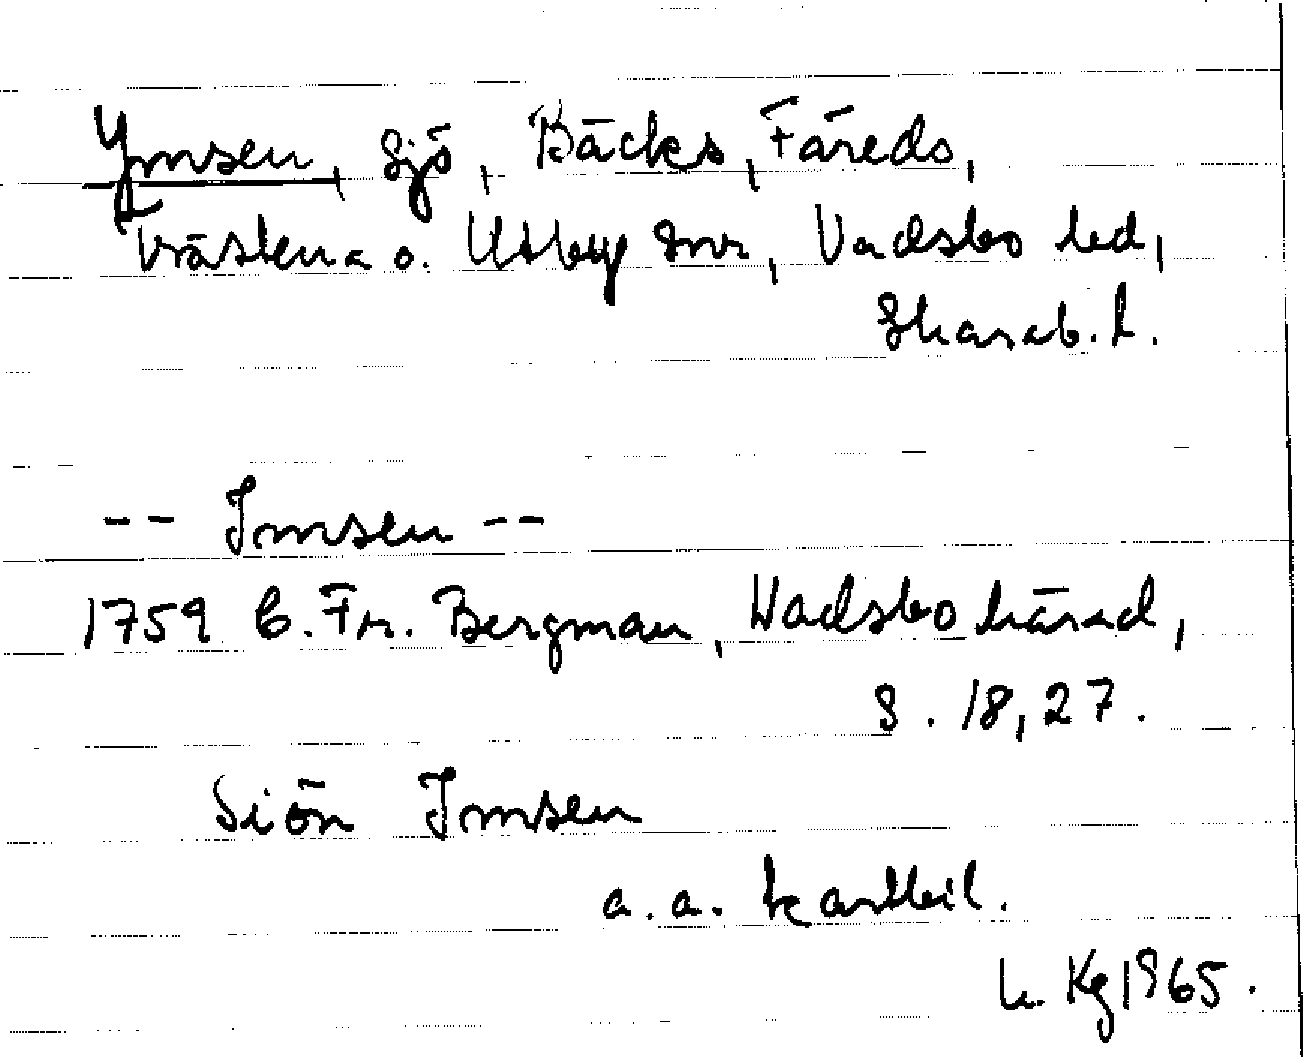 Ymsen, sjö, Bäcks, Färeds,
Vrästena o. Utby snr, Vadsbo hd,
Skarab. l.
-- Imsen --
1759 C. Fr. Bergman, Wadsbo härad,
s. 18, 27.
Siön Imsen
a. a. kartbil.
Kg 1965.